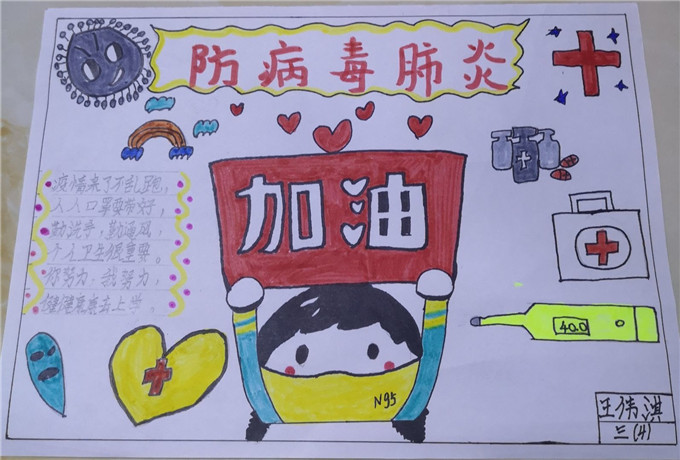 防病毒肺炎
加油
疫情来了不乱跑，
人人口罩要带好，
勤洗手，勤通风，
个人卫生很重要。
你努力，我努力，
健健康康去上学。
40.0
N95
王伟淇
三(4)